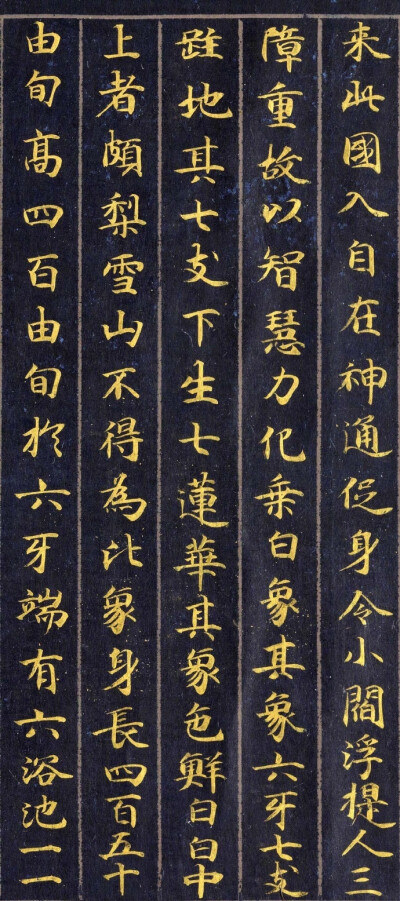 来此國入自在神通促身令小閻浮提人三
障重故以智慧力化乗白象其象六牙七支
跓地其七支下生七蓮華其象色鮮白白中
上者頗梨雪山不得為比象身長四百五十
由旬髙四百由旬扵六牙端有六浴池一一